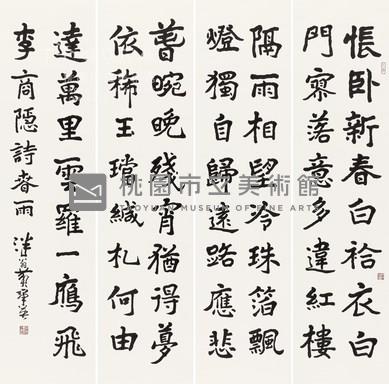 悵臥新春白袷衣白
門寥落意多違紅樓
隔雨相望冷珠箔飄
燈獨自歸遠路應悲
萅晼晚殘宵猶得夢
依稀玉璫緘札何由
達萬里雲羅一鴈飛
李商隱詩春雨
桃園市立美術館
TAOYUAN MUSEUM OF FINE ARTS